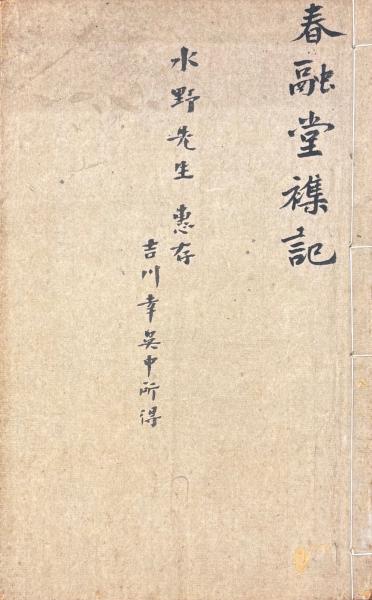 春融堂襍記
水野先生 惠存
吉川幸吴中所得